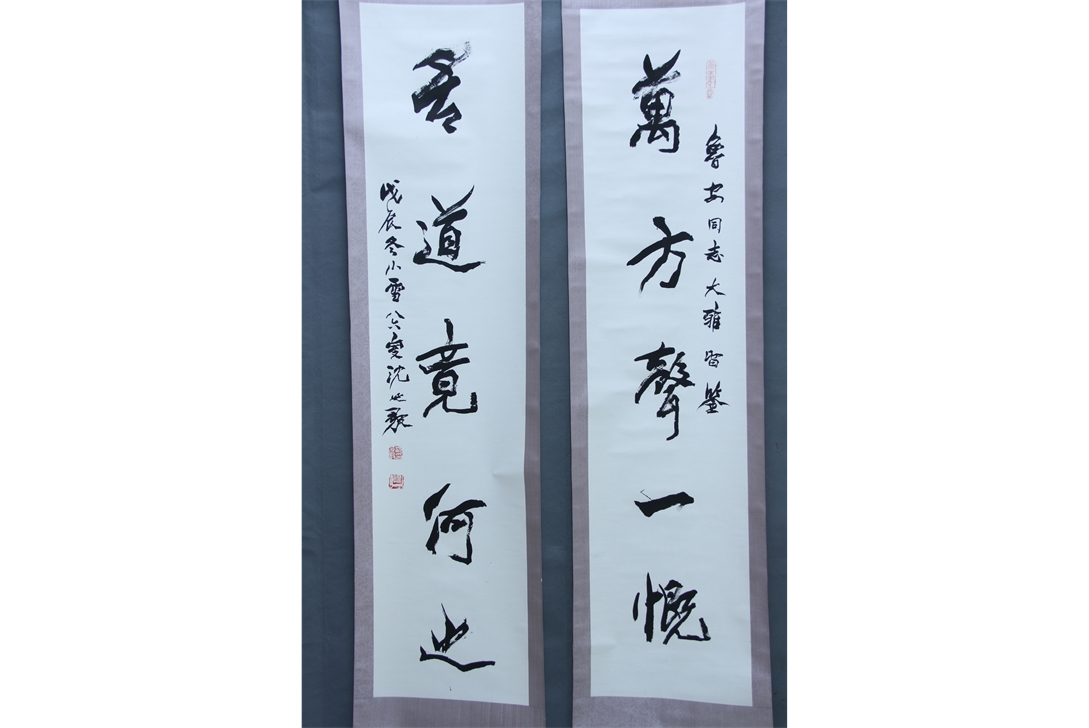 魯安同志大雅留鉴
萬方聲一慨
吾道竟何之
戊辰冬小雪八六叟沈延毅